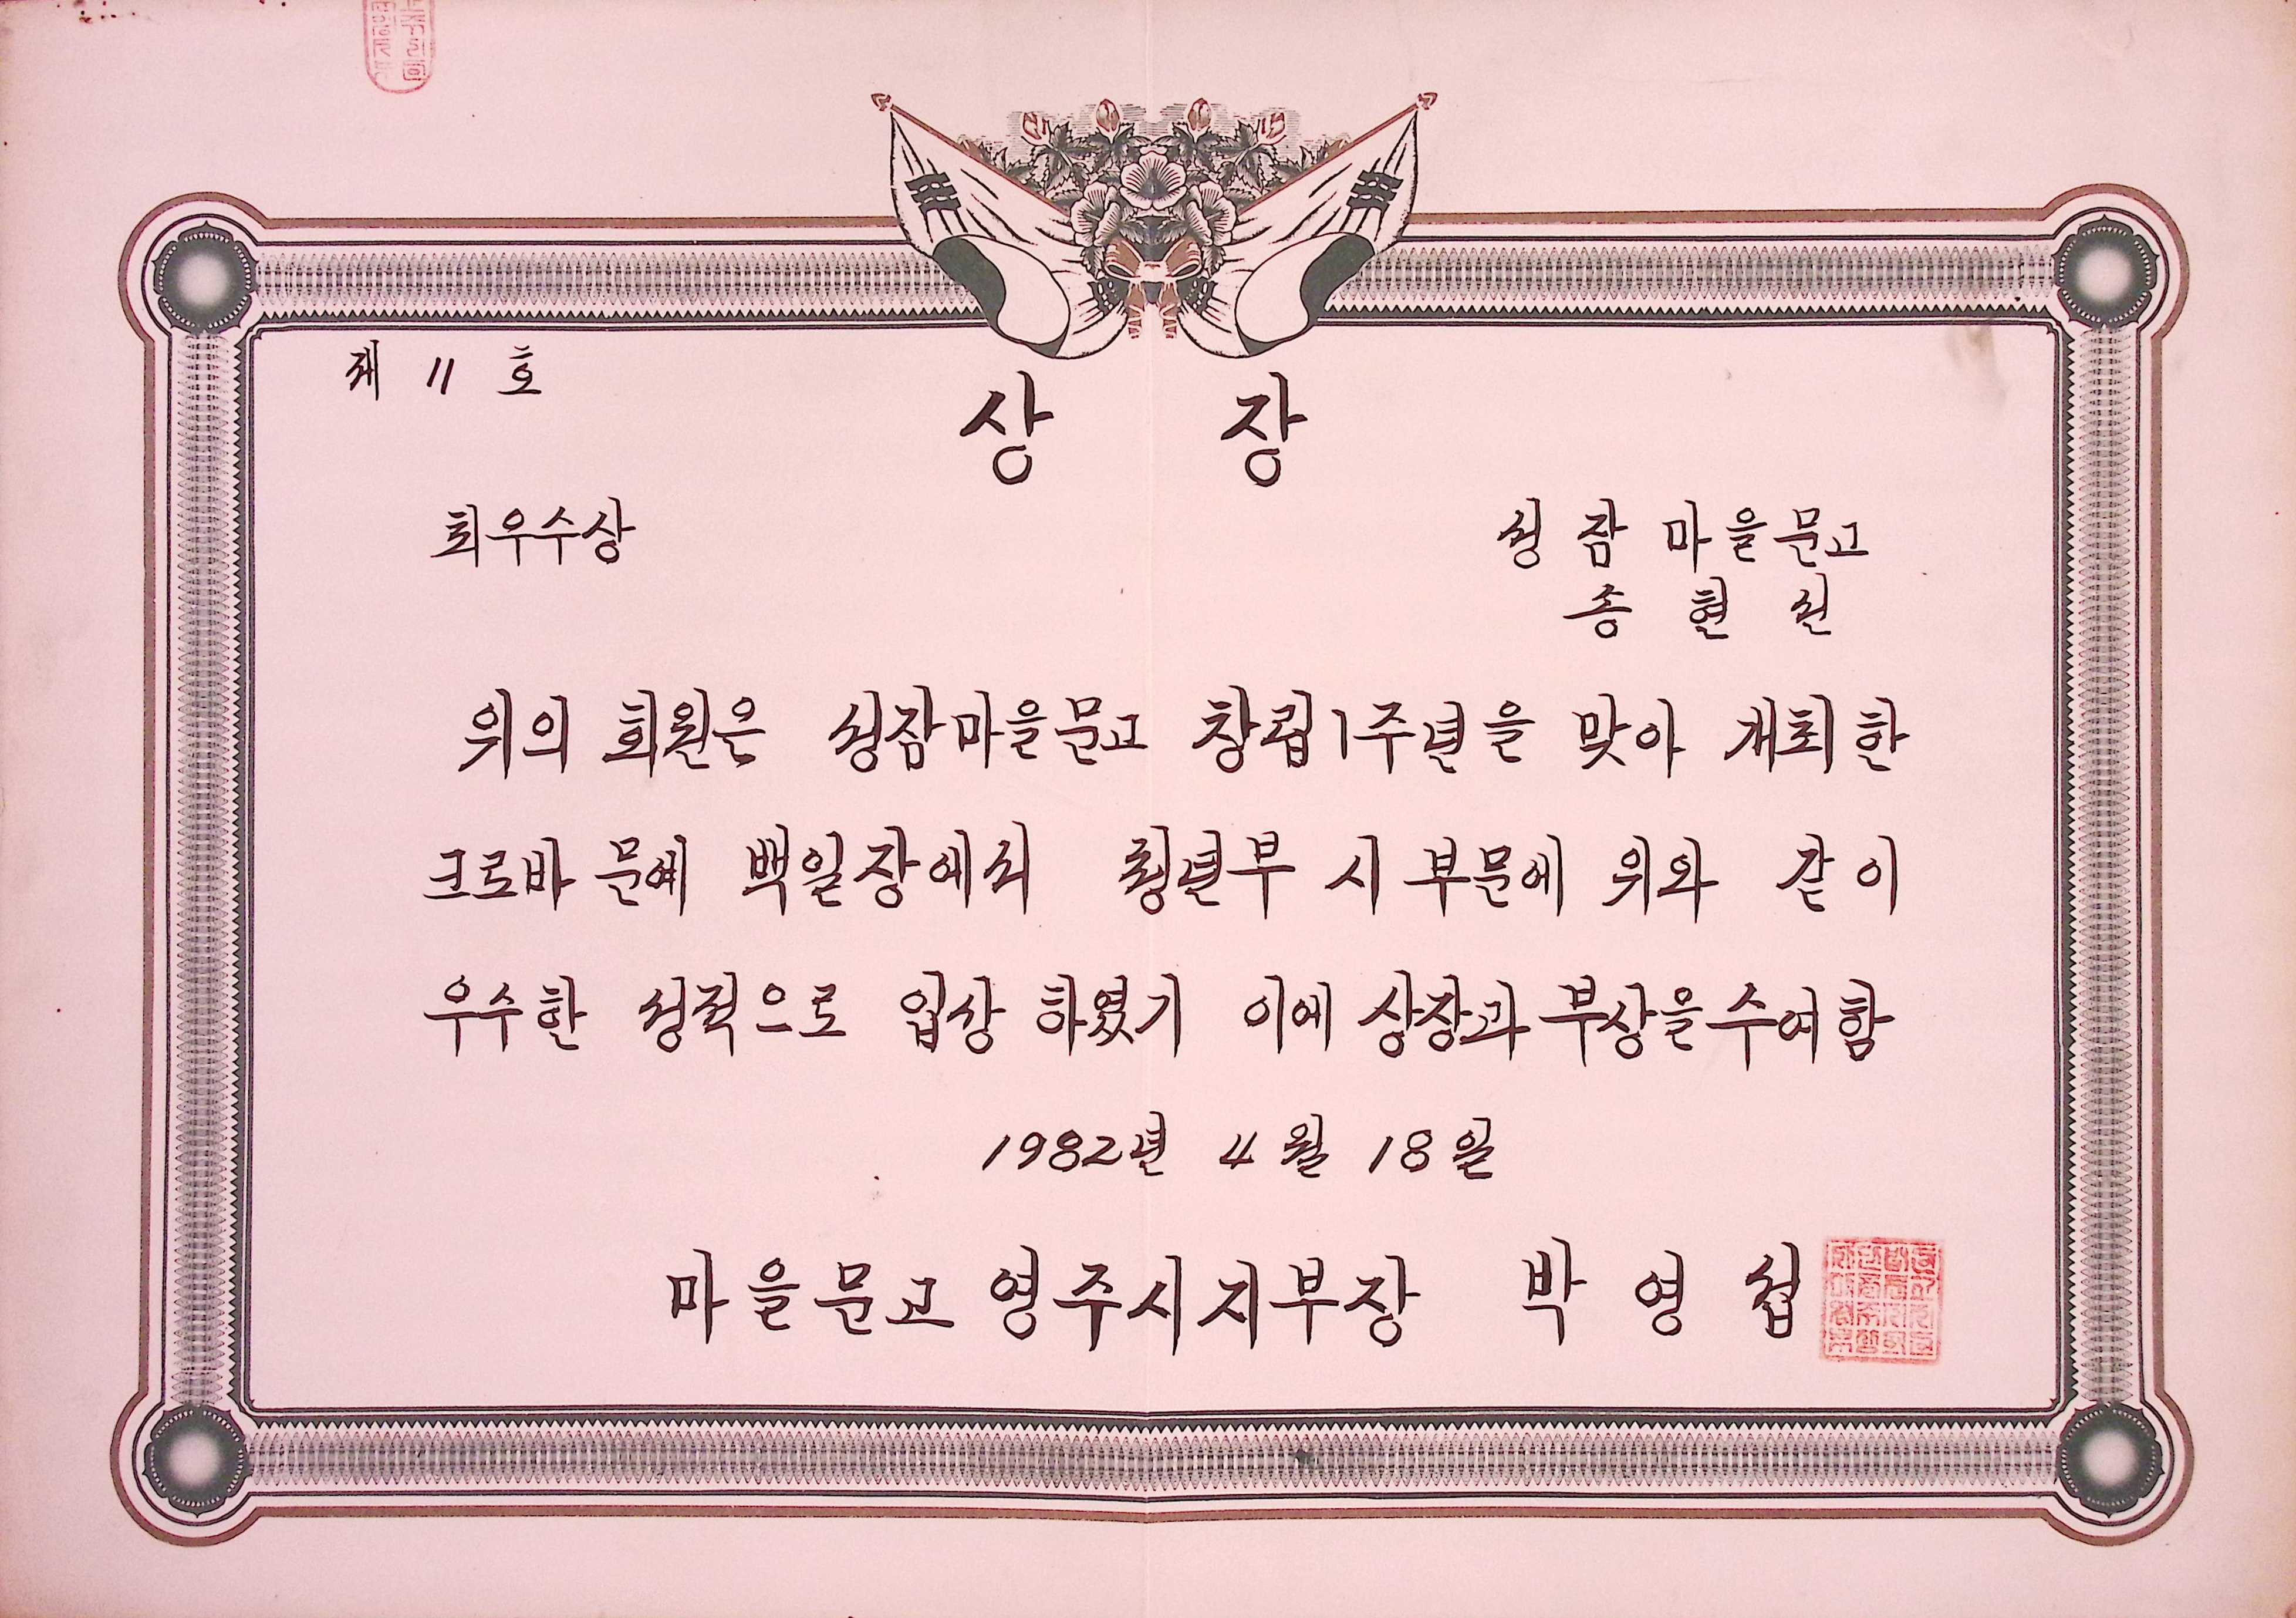 제 11 호
상 장
최우수상
성 잠 마을문고
송 현 선
위의 회원은 성잠마을문고 창립1주년을 맞아 개최한
크로바 문예 백일장에서 청년부 시 부문에 위와 같이
우수한 성적으로 입상 하였기 이에 상장과 부상을 수여함
1982년 4월 18일
마을문고 영주시지부장 박 영 섭